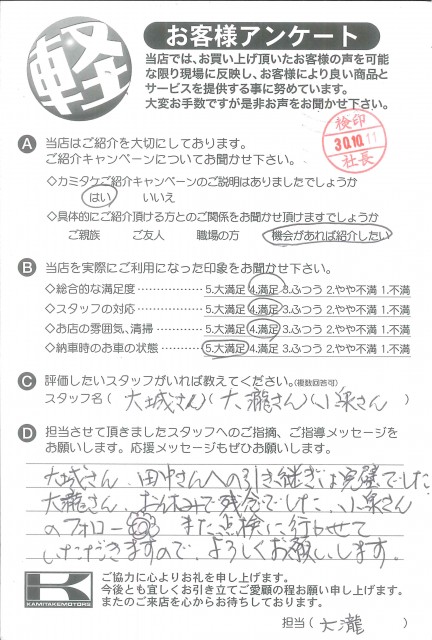 軽
お客様アンケート
当店では、お買い上げ頂いたお客様の声を可能
な限り現場に反映し、お客様により良い商品と
サービスを提供する事に努めています。
大変お手数ですが是非お声をお聞かせ下さい。
検印
30.10.11
社長
A 当店はご紹介を大切にしております。
ご紹介キャンペーンについてお聞かせ下さい。
◇カミタケご紹介キャンペーンのご説明はありましたでしょうか
はい いいえ
◇具体的にご紹介頂ける方とのご関係をお聞かせ頂けますでしょうか
ご親族 ご友人 職場の方 機会があれば紹介したい
B 当店を実際にご利用になった印象をお聞かせ下さい。
◇総合的な満足度 ……………… 5.大満足 4.満足 3.ふつう 2.やや不満 1.不満
◇スタッフの対応 ……………… 5.大満足 4.満足 3.ふつう 2.やや不満 1.不満
◇お店の雰囲気、清掃 ………… 5.大満足 4.満足 3.ふつう 2.やや不満 1.不満
◇納車時のお車の状態 ………… 5.大満足 4.満足 3.ふつう 2.やや不満 1.不満
C 評価したいスタッフがいれば教えてください。(複数回答可)
スタッフ名 ( 大城さん)(大瀧さん)(小泉さん )
D 担当させて頂きましたスタッフへのご指摘、ご指導メッセージを
お願いします。応援メッセージもぜひお願いします。
大城さん、田中さんへの引き継ぎは完璧でした
大瀧さん、お休みで残念でした、小泉さん
のフォロー◎ また点検に行かせて
いただきますので、よろしくお願いします。
K
KAMITAKEMOTORS
ご協力に心よりお礼を申し上げます。
今後とも宜しくお引き立てご愛顧の程お願い申し上げます。
またのご来店を心からお待ちしております。
担当 ( 大瀧 )